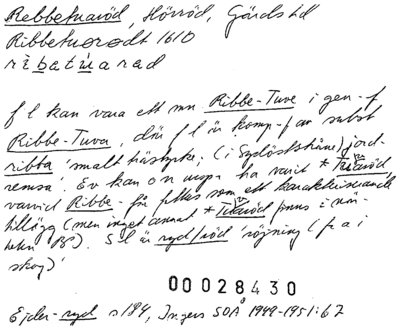 Rebbetuaröd, Hörröd, Gärds hd
Ribbetuorodt 1610
ribatuarad
f l kan vara ett mn Ribbe-Tuve i gen-f
Ribbe-Tuva, där f l är komp-f av subst
ribba 'smalt trästycke; (i Sydöstskåne) jord-
remsa'. Ev kan o n urspr ha varit *Tuvaröd,
varvid Ribbe- får fattas som ett karakteriserande
tillägg (men inget annat *Tuvaröd finns i när-
heten). S l är ryd/röd 'röjning (fr a i
skog)'
00028430
Ejder-ryd s 184, Ingers SOÅ 1949-1951:62